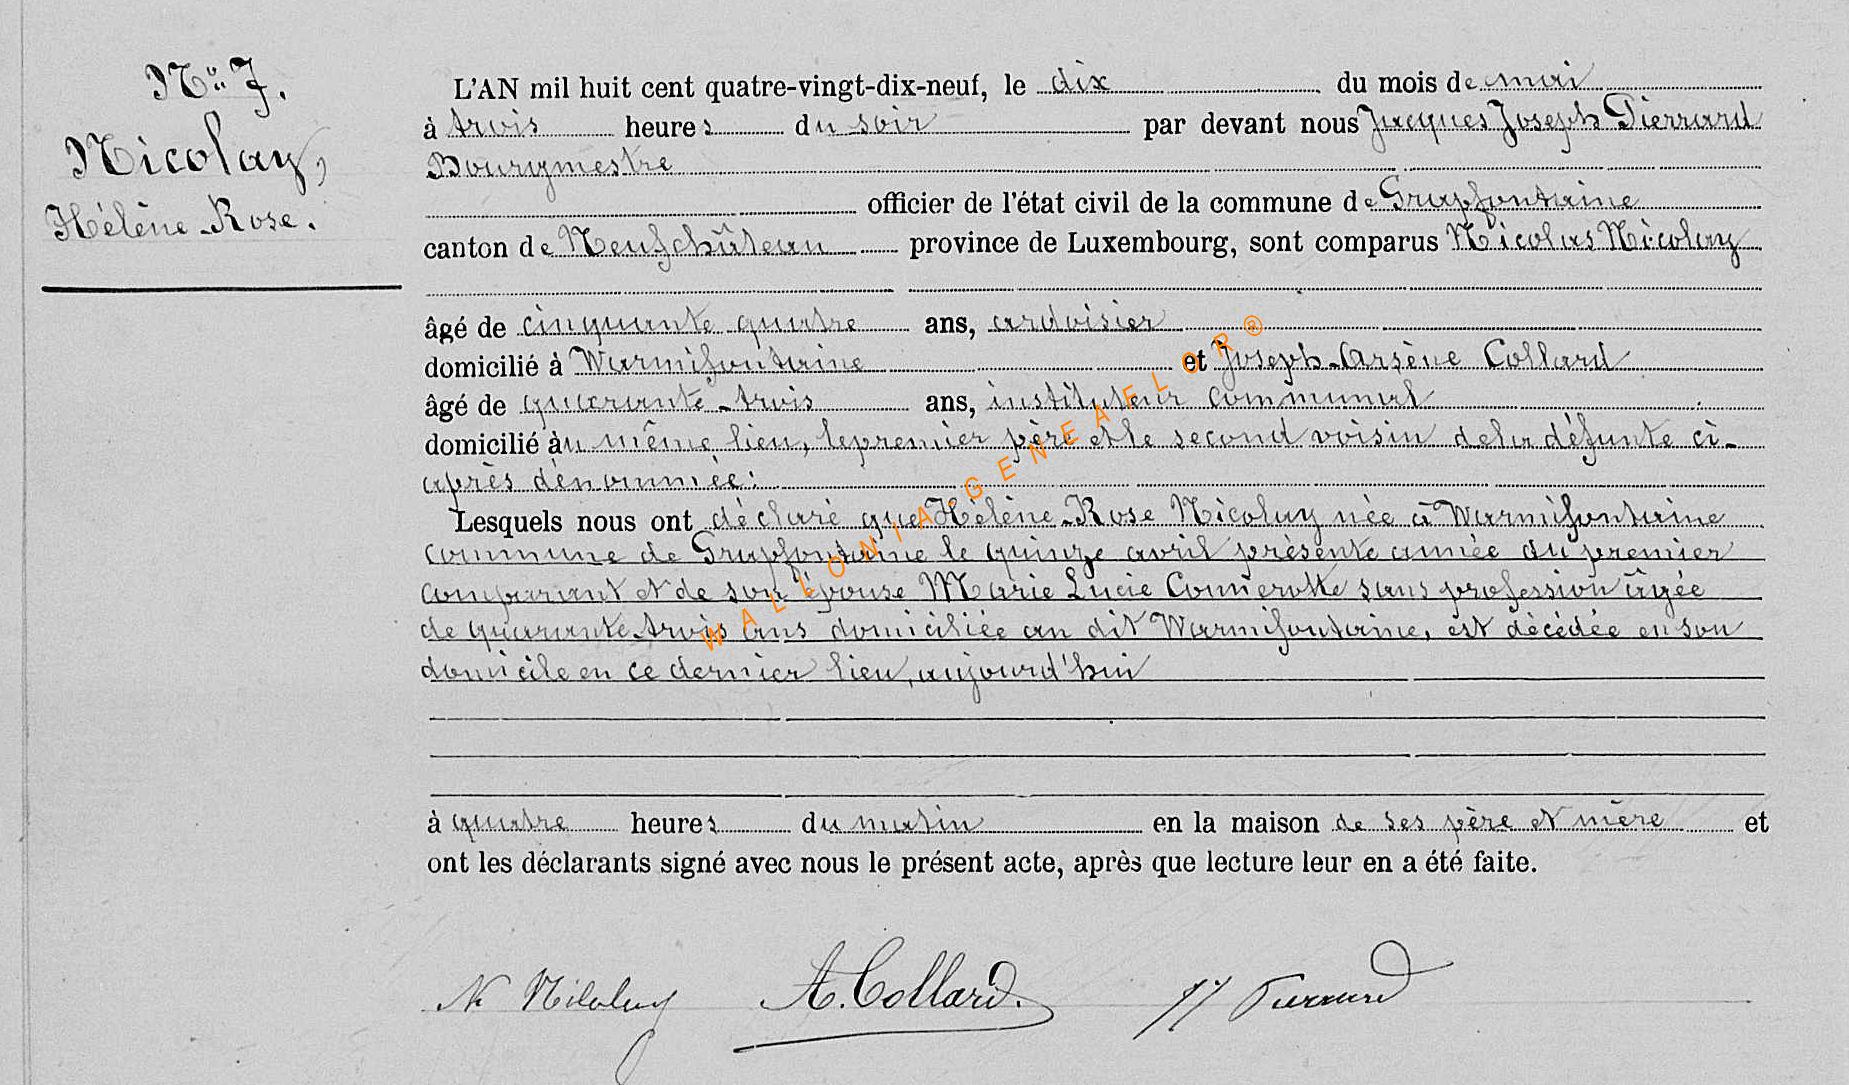 N° 7.
Nicolay,
Hélène-Rose.
L'AN mil huit cent quatre-vingt-dix-neuf, le dix du mois de mai
à trois heures du soir par devant nous Jacques Joseph Pierrard
Bourgmestre
officier de l'état civil de la commune de Grapfontaine
canton de Neufchâteau province de Luxembourg, sont comparus Nicolas Nicolay
âgé de cinquante quatre ans, ardoisier
domicilié à Warmifontaine et Joseph-Arsène Collard
âgé de quarante-trois ans, instituteur communal
domicilié au même lieu, le premier père et le second voisin de la défunte ci-
après dénommée:
Lesquels nous ont déclaré que Hélène-Rose Nicolay née à Warmifontaine
commune de Grapfontaine le quinze avril présente année du premier
comparant et de son épouse Marie Lucie Comerotte sans profession âgée
de quarante trois ans domiciliée au dit Warmifontaine, est décédée en son
domicile en ce dernier lieu, aujourd'hui
à quatre heures du matin en la maison de ses père et mère et
ont les déclarants signé avec nous le présent acte, après que lecture leur en a été faite.
N Nicolay A. Collard. JJ Pierrard
WALLONIA GENEAFLOR®